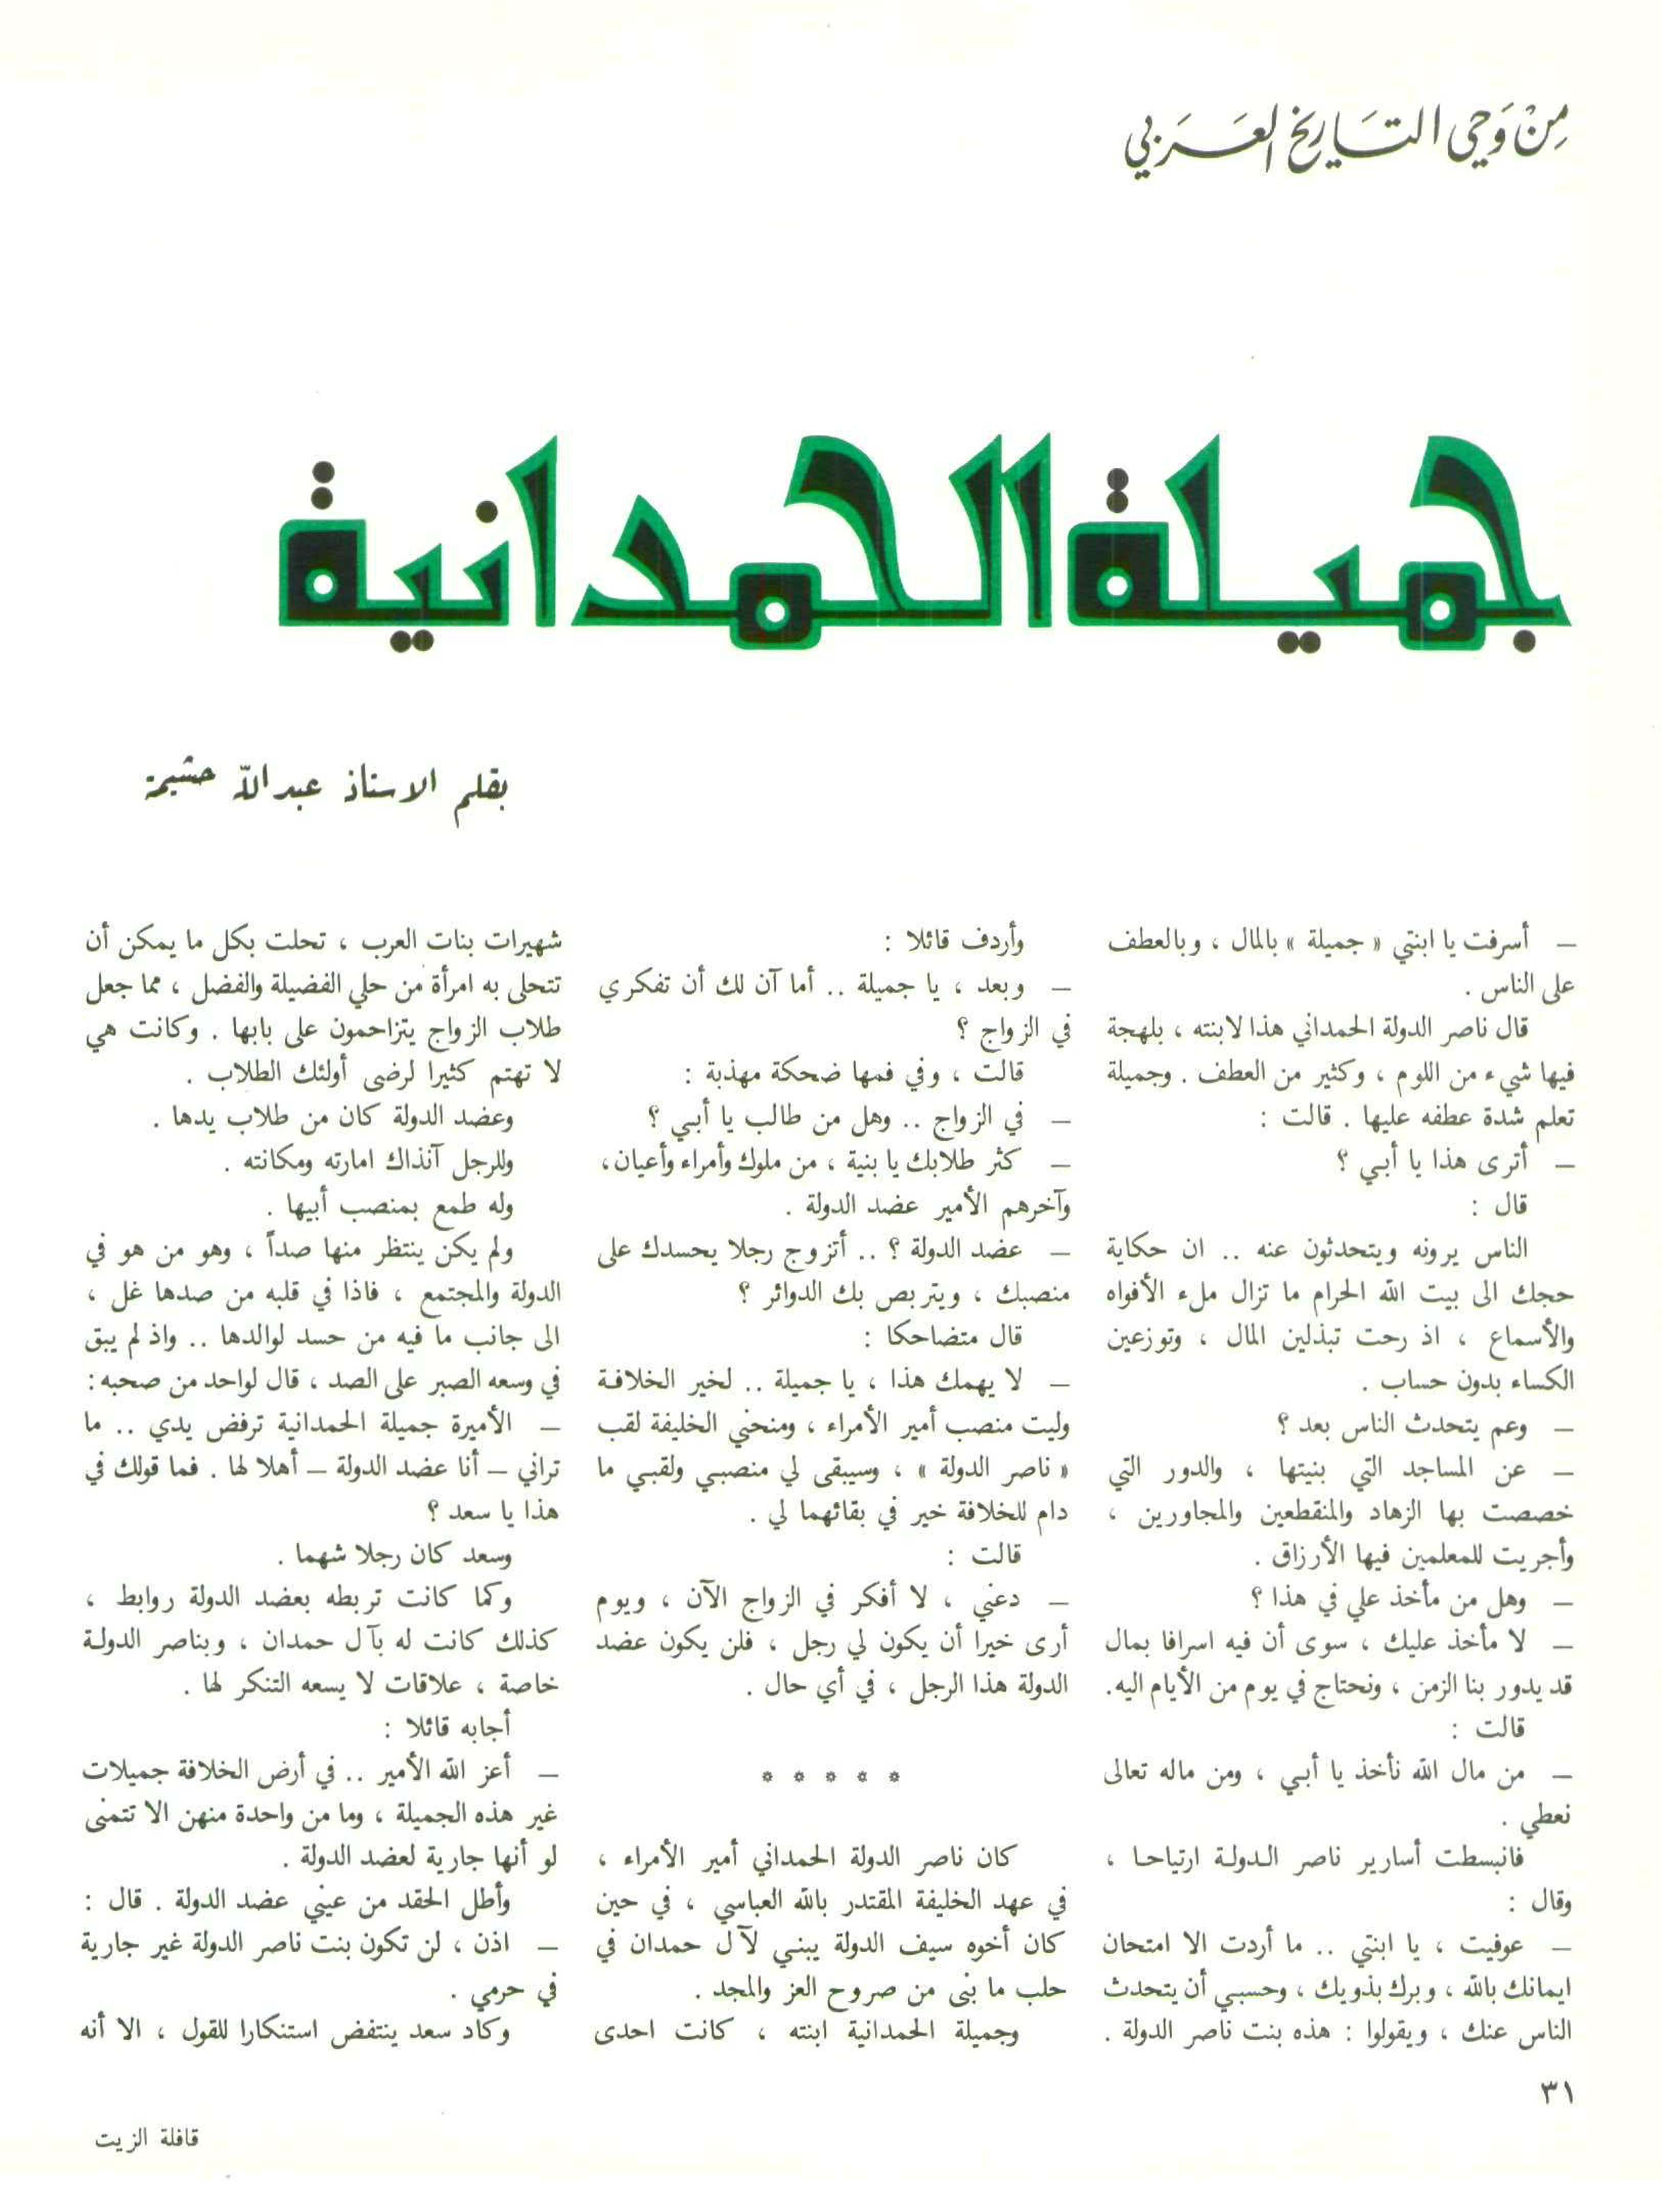 من وحي التاريخ العربي
جميلة الحمدانية
بقلم الاستاذ عبد الله حشيمة
— أسرفت يا ابنتي « جميلة » بالمال ، وبالعطف
على الناس .
قال ناصر الدولة الحمداني هذا لابنته ، بلهجة
فيها شيء من اللوم ، وكثير من العطف . وجميلة
تعلم شدة عطفه عليها . قالت :
— أترى هذا يا أبي ؟
قال :
الناس يرونه ويتحدثون عنه .. ان حكاية
حجك الى بيت الله الحرام ما تزال ملء الأفواه
والأسماع ، اذ رحت تبذلين المال ، وتوزعين
الكساء بدون حساب .
— وعم يتحدث الناس بعد ؟
— عن المساجد التي بنيتها ، والدور التي
خصصت بها الزهاد والمنقطعين والمجاورين ،
وأجريت للمعلمين فيها الأرزاق .
— وهل من مأخذ علي في هذا ؟
— لا مأخذ عليك ، سوى أن فيه اسرافا بمال
قد يدور بنا الزمن ، ونحتاج في يوم من الأيام اليه.
قالت :
— من مال الله نأخذ يا أبي ، ومن ماله تعالى
نعطي .
فانبسطت أسارير ناصر الدولة ارتياحا ،
وقال :
— عوفيت ، يا ابنتي .. ما أردت الا امتحان
ايمانك بالله ، وبرك بذويك ، وحسبي أن يتحدث
الناس عنك ، ويقولوا : هذه بنت ناصر الدولة .
وأردف قائلا :
— وبعد ، يا جميلة .. أما آن لك أن تفكري
في الزواج ؟
قالت ، وفي فمها ضحكة مهذبة :
— في الزواج .. وهل من طالب يا أبي ؟
— كثر طلابك يا بنية ، من ملوك وأمراء وأعيان،
وآخرهم الأمير عضد الدولة .
— عضد الدولة ؟ .. أتزوج رجلا يحسدك على
منصبك ، ويتربص بك الدوائر ؟
قال متضاحكا :
— لا يهمك هذا ، يا جميلة .. لخير الخلافة
وليت منصب أمير الأمراء ، ومنحني الخليفة لقب
« ناصر الدولة » ، وسيبقى لي منصبي ولقبي ما
دام للخلافة خير في بقائهما لي .
قالت :
— دعني ، لا أفكر في الزواج الآن ، ويوم
أرى خيرا أن يكون لي رجل ، فلن يكون عضد
الدولة هذا الرجل ، في أي حال .
* * * * *
كان ناصر الدولة الحمداني أمير الأمراء ،
في عهد الخليفة المقتدر بالله العباسي ، في حين
كان أخوه سيف الدولة يبني لآل حمدان في
حلب ما بنى من صروح العز والمجد .
وجميلة الحمدانية ابنته ، كانت احدى
شهيرات بنات العرب ، تحلت بكل ما يمكن أن
تتحلى به امرأة من حلي الفضيلة والفضل ، مما جعل
طلاب الزواج يتزاحمون على بابها . وكانت هي
لا تهتم كثيرا لرضى أولئك الطلاب .
وعضد الدولة كان من طلاب يدها .
وللرجل آنذاك امارته ومكانته .
وله طمع بمنصب أبيها .
ولم يكن ينتظر منها صداً ، وهو من هو في
الدولة والمجتمع ، فاذا في قلبه من صدها غل ،
الى جانب ما فيه من حسد لوالدها .. واذ لم يبق
في وسعه الصبر على الصد ، قال لواحد من صحبه:
— الأميرة جميلة الحمدانية ترفض يدي .. ما
تراني — أنا عضد الدولة — أهلا لها . فما قولك في
هذا يا سعد ؟
وسعد كان رجلا شهما .
وكما كانت تربطه بعضد الدولة روابط ،
كذلك كانت له بآل حمدان ، وبناصر الدولة
خاصة ، علاقات لا يسعه التنكر لها .
أجابه قائلا :
— أعز الله الأمير .. في أرض الخلافة جميلات
غير هذه الجميلة ، وما من واحدة منهن الا تتمنى
لو أنها جارية لعضد الدولة .
وأطل الحقد من عيني عضد الدولة . قال :
— اذن ، لن تكون بنت ناصر الدولة غير جارية
في حرمي .
وكاد سعد ينتفض استنكارا للقول ، الا أنه
٣١
قافلة الزيت